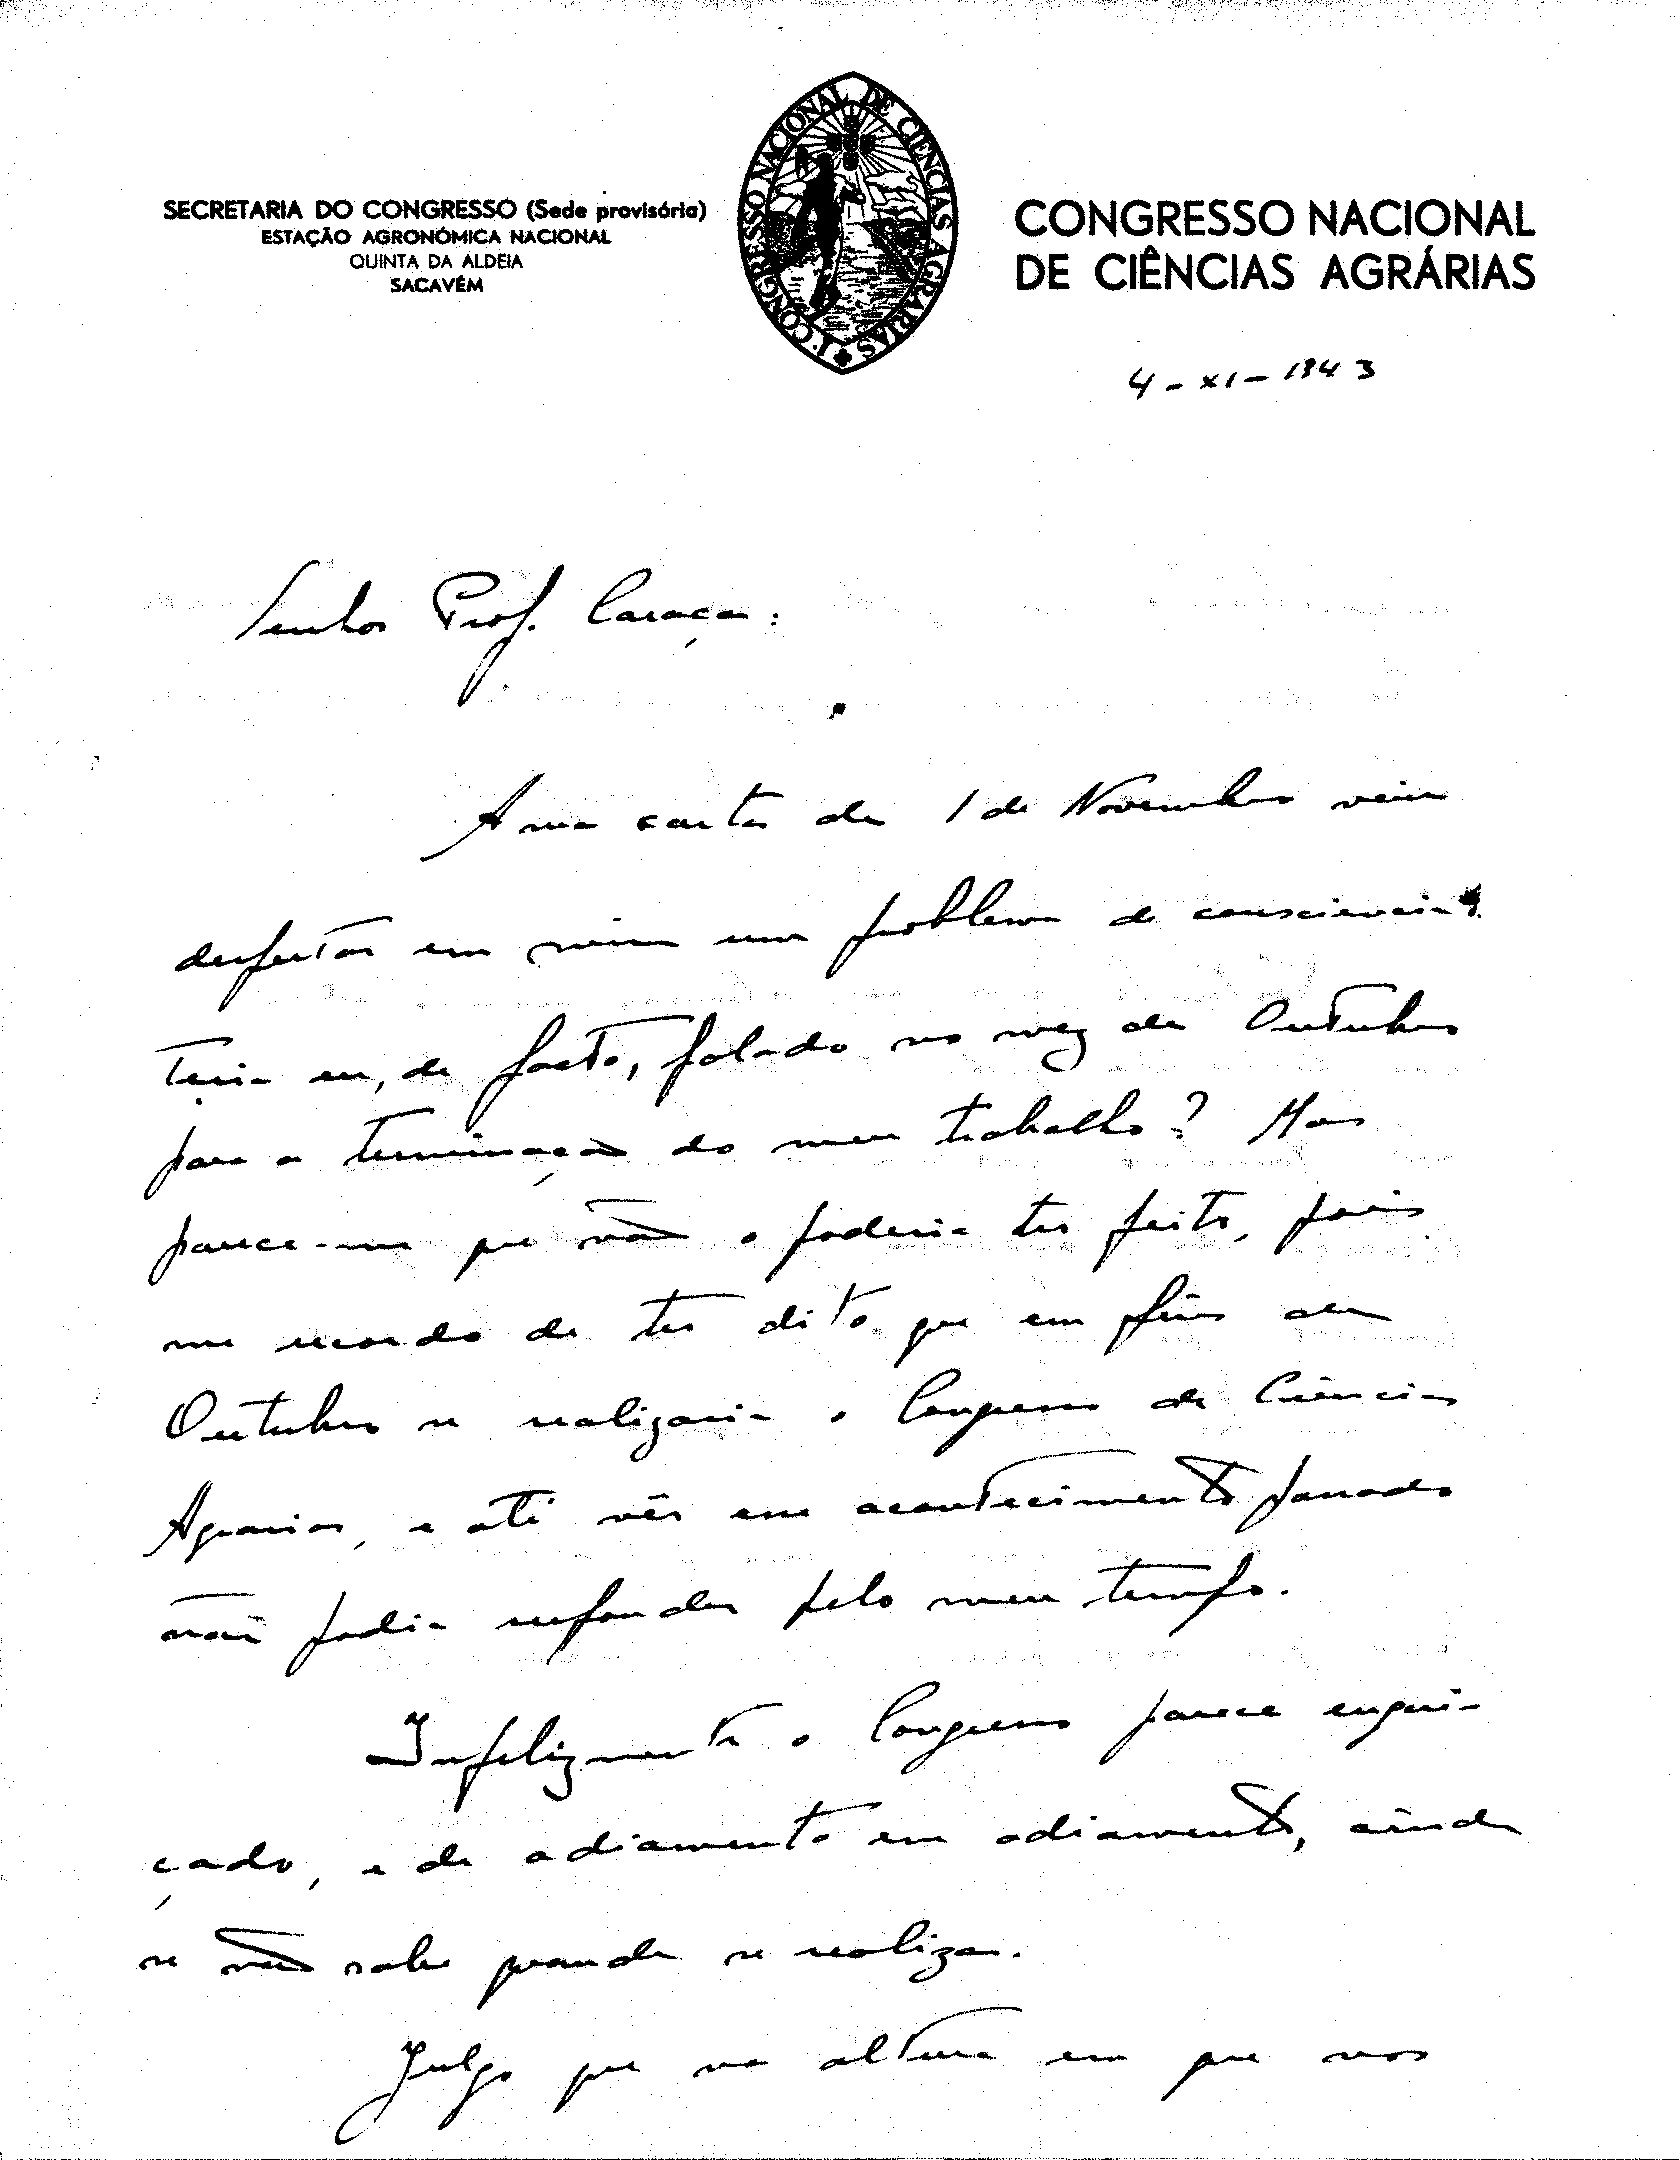 SECRETARIA DO CONGRESSO (Sede provisória)
ESTAÇÃO AGRONÓMICA NACIONAL
QUINTA DA ALDEIA
SACAVÉM
I. CONGRESSO NACIONAL DE CIENCIAS AGRARIAS
CONGRESSO NACIONAL
DE CIÊNCIAS AGRÁRIAS
4-XI-1943
Senhor Prof. Caraça:
A sua carta de 1 de Novembro veiu
despertar em mim um problema de consciencia:
Teria eu, de facto, falado no mez de Outubro
para a terminação do meu trabalho? Mas
parece-me que não o poderia ter feito, pois
me recordo de ter dito que em fins de
Outubro se realizaria o Congresso de Ciências
Agrarias, e até vêr esse acontecimento passado
não podia responder pelo meu tempo.
Infelizmente o Congresso parece engui-
çado, e de adiamento em adiamento, ainda
se não sabe quando se realiza.
Julgo que na altura em que nos